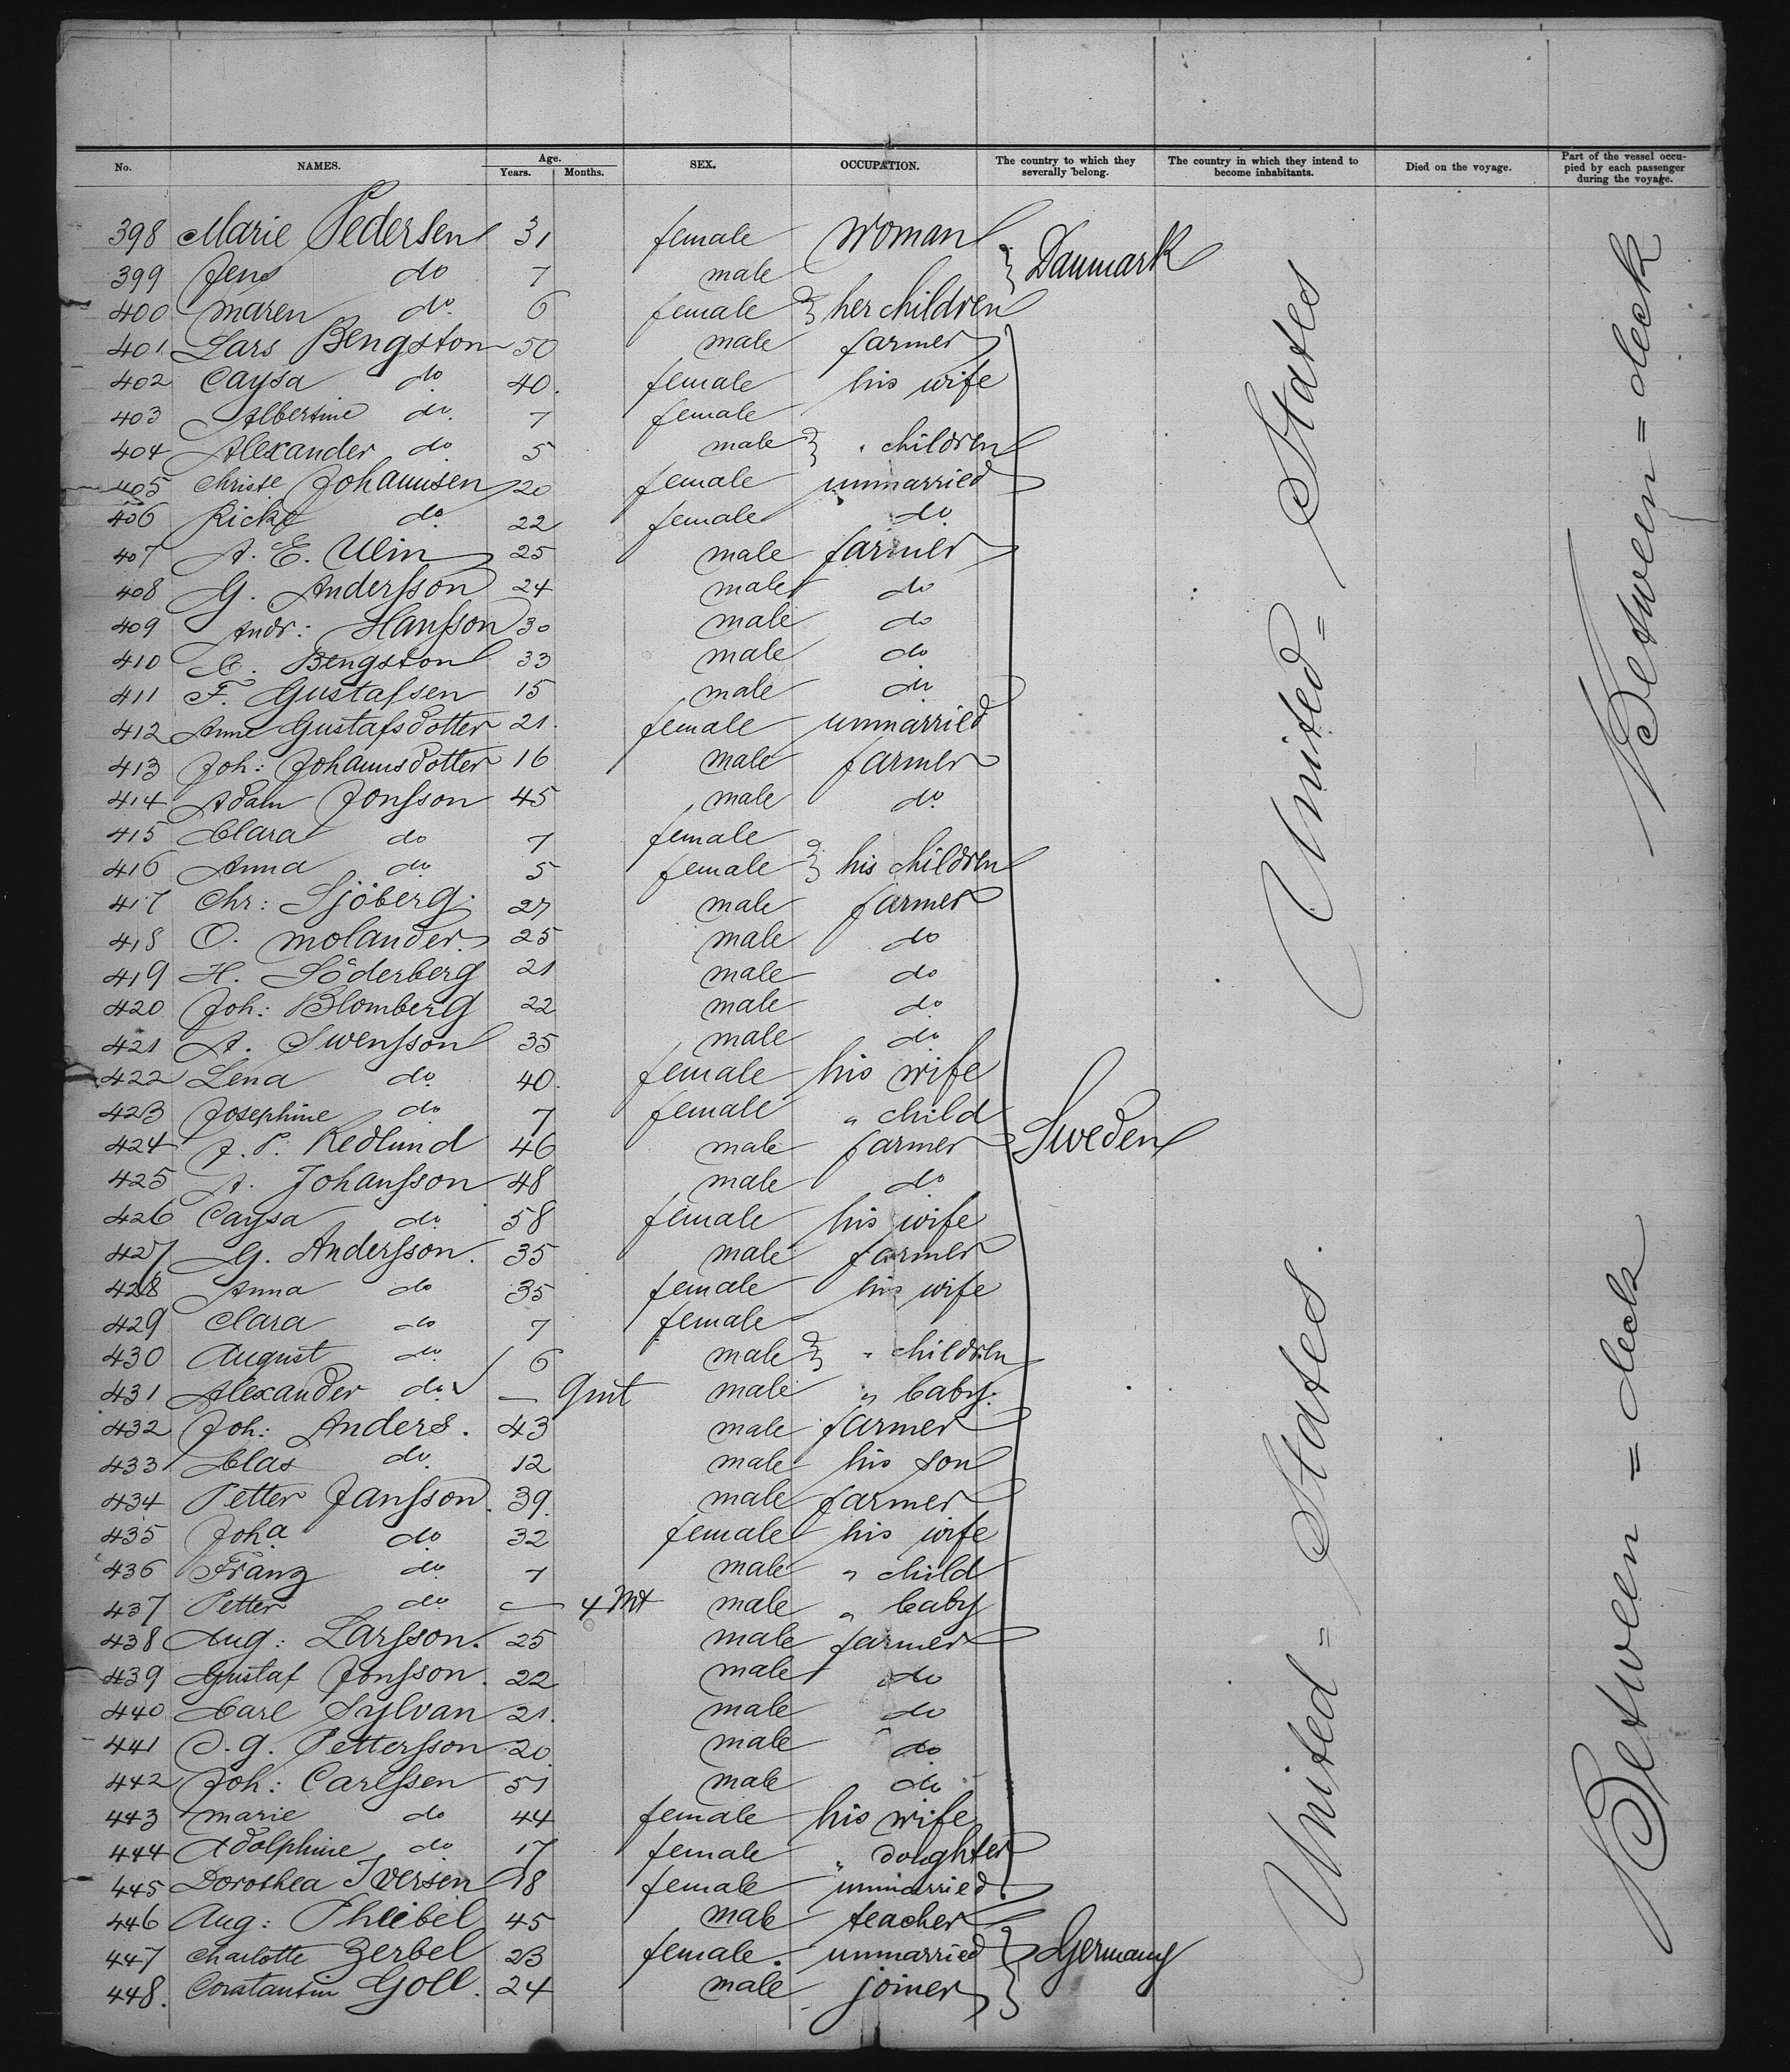 No. NAMES. Age. Years. Months. SEX. OCCUPATION. The country to which they severally belong. The country in which they intend to become inhabitants. Died on the voyage. Part of the vessel occupied by each passenger during the voyage.
398 Marie Pedersen 31 female woman
399 Jens do 7 male } Danmark
400 Maren do. 6 female } her children
401 Lars Bengston 50 male farmer
402 Caysa do 40. female his wife
403 Albertine do. 7 female
404 Alexander do 5 male } " children
405 Christe Johannsen 20 female unmarried
406 Ricke do 22 female do
407 A. E. Ulin 25 male farmer
408 G. Andersson 24 male do
409 Andr: Hansson 30 male do
410 C. Bengston 33 male do
411 F. Gustafsen 15 male do
412 Anna Gustafsdotter 21. female unmarried
413 Joh: Johannsdotter 16 male farmer
414 Adam Jonsson 45 male do
415 Clara do 7 female
416 Anna do 5 female } his children
417 Chr: Sjöberg. 27 male farmer
418 O. Molander. 25 male do
419 H. Söderberg 21 male do
420 Joh: Blomberg 22 male do
421 A. Swensson 35 male do
422 Lena do 40. female his wife
423 Josephine do 7 female " child
424 J. P. Redlund 46 male farmer Sweden
425 A. Johansson 48 male do
426 Caysa do 58 female his wife
427 G. Andersson. 35 male farmer
428 Anna do 35 female his wife
429 Clara do 7 female
430 August do 6 male } " children
431 Alexander do — 9mt male " baby.
432 Joh: Anders. 43 male farmer
433 Clas do. 12 male his son
434 Petter Jansson. 39. male farmer
435 Joha do 32 female his wife
436 Franz do 7 male " child
437 Petter do — 4 Mt male " baby
438 Aug: Larsson. 25 male farmer
439 Gustaf Jonsson. 22 male do
440 Carl Sylvan 21. male do
441 O. G. Pettersson 20 male do
442 Joh: Carlssen 51 male do
443 Marie do 44 female his wife
444 Adolphine do 17 female " doughter
445 Dorothea Iversen 18 female unmarried
446 Aug: Phleibel 45 male teacher
447 Charlotte Zerbel 23 female. unmarried } Germany
448. Constantin Goll. 24 male joiner
United = States
United = States.
Between = deck
Between = deck